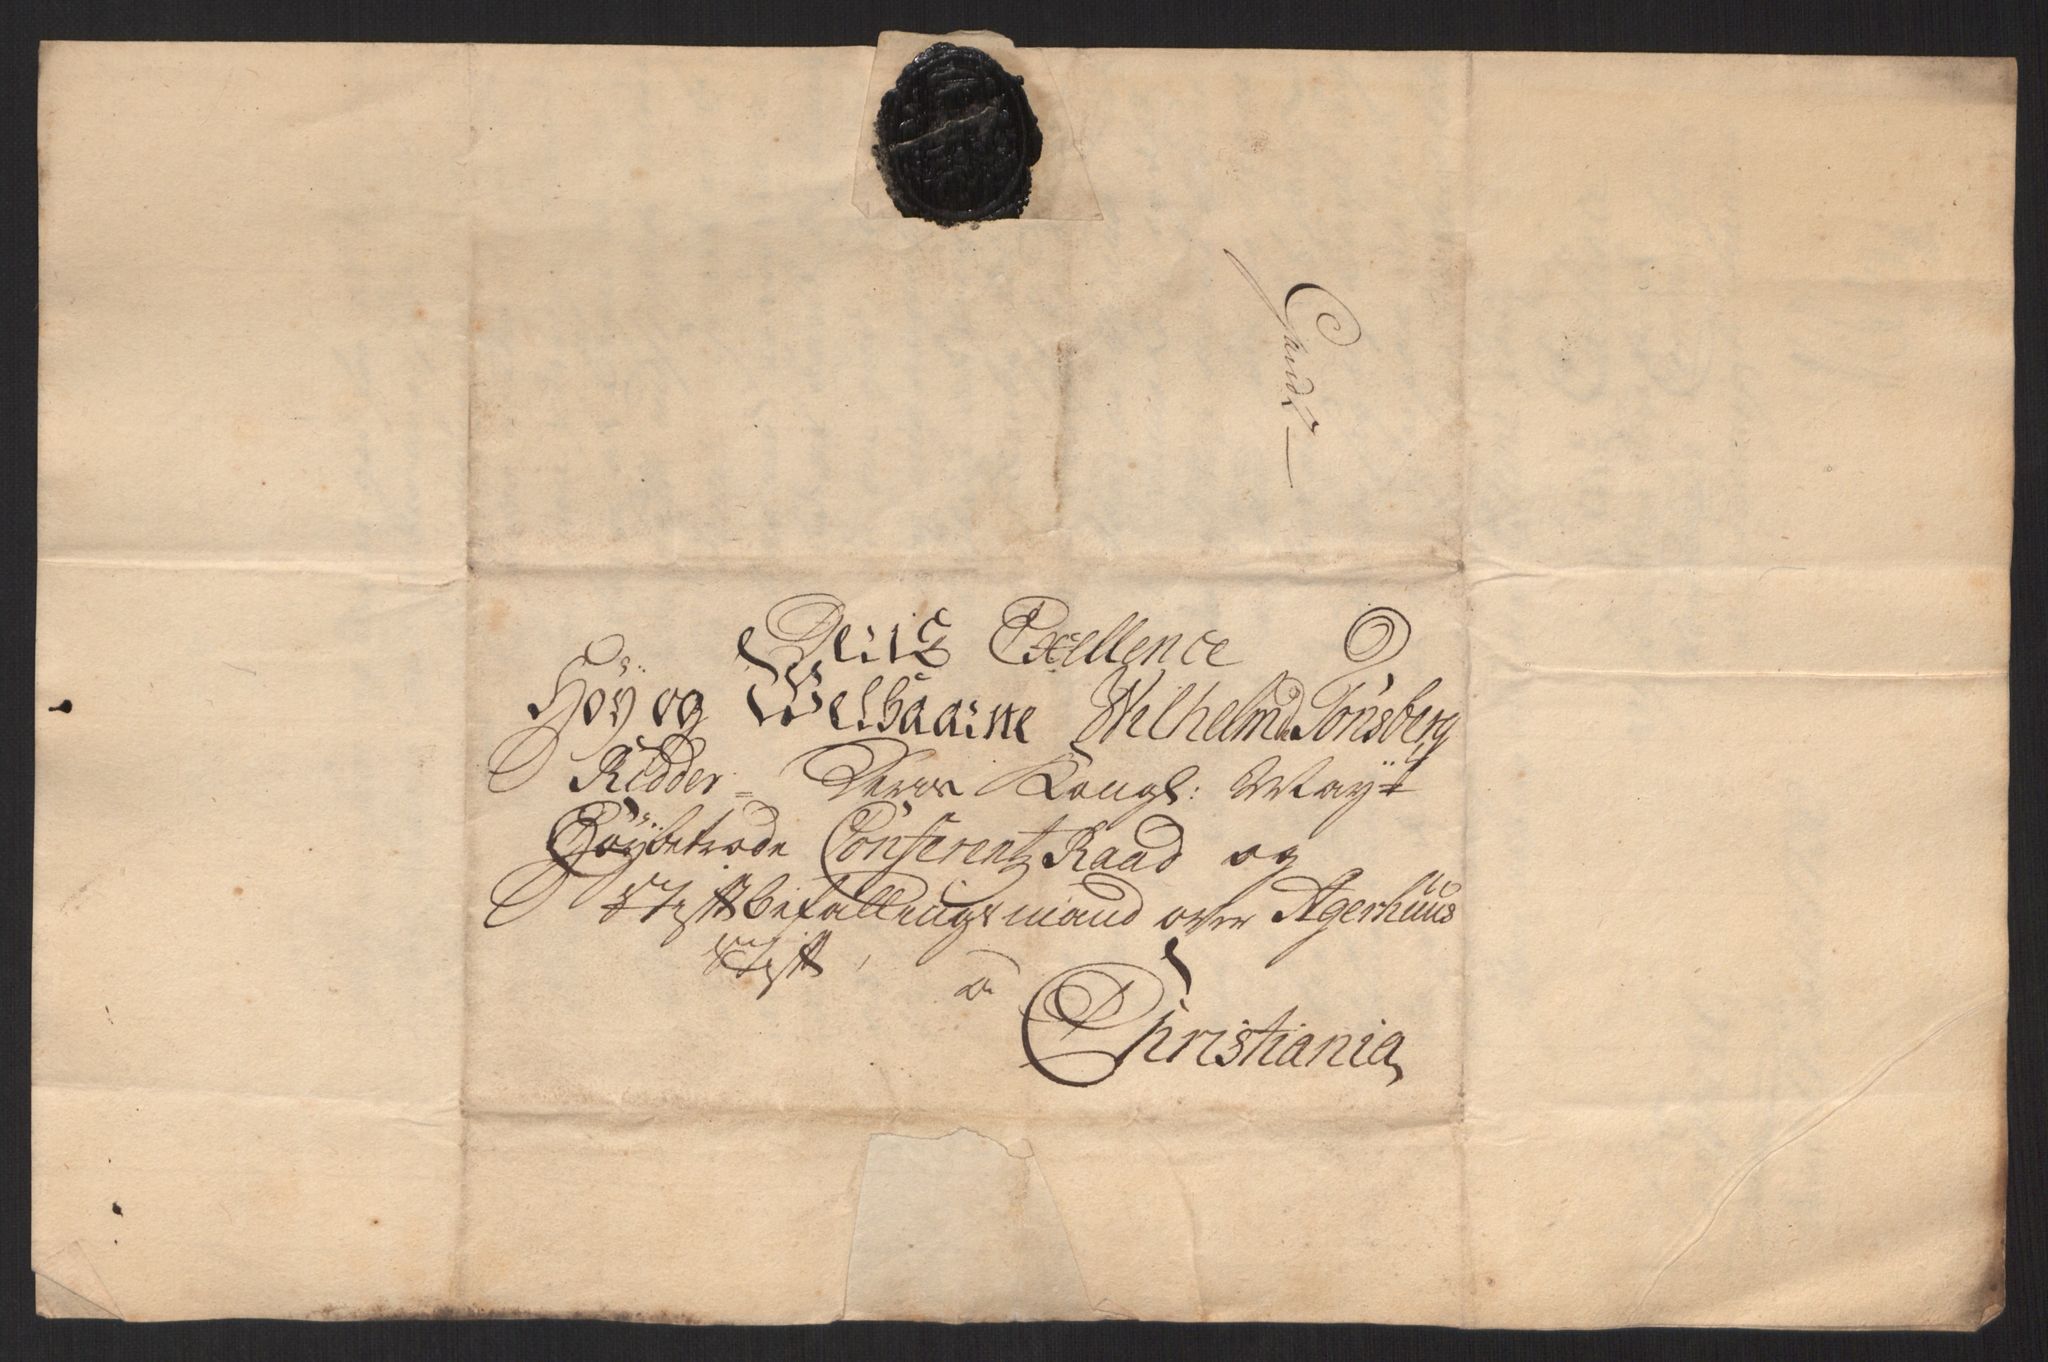 Deris Exellence
Höy og Velbaarne Wilhelm de Tönsberg
Ridder = Deres Kongl: May:t
Höybetrode Conferentz Raad og
Stiftbefallingsmand over Agerhuus
Stift, a
Christiania